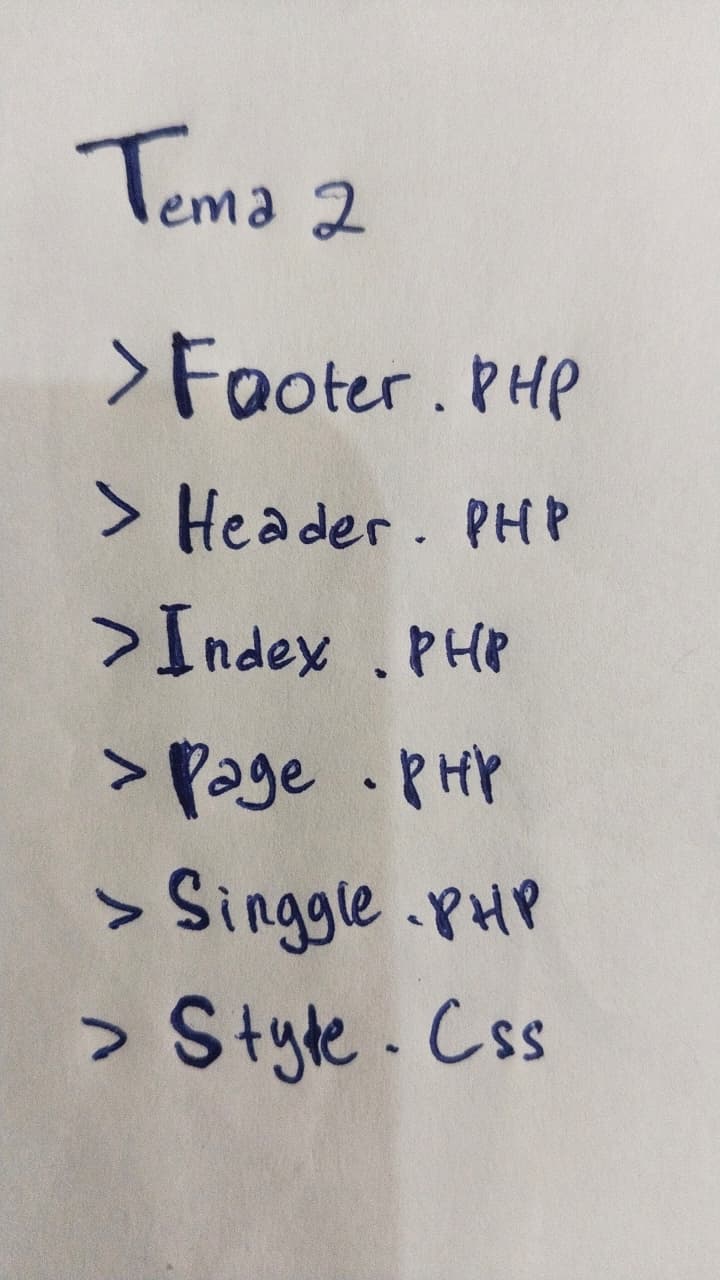 Tema 2
> Footer. PHP
> Header. PHP
> Index. PHP
> Page. PHP
> Singgle. PHP
> Style. Css